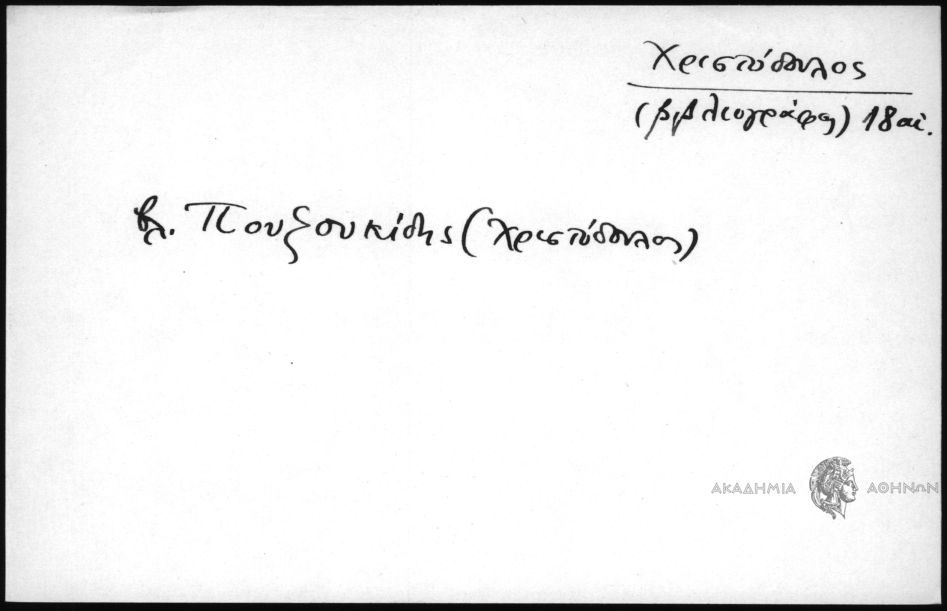 Χριστόδουλος
(βιβλιογράφος) 18 αἰ.
βλ. Πουξουκίδης (Χριστόδουλος)
ΑΚΑΔΗΜΙΑ ΑΘΗΝΩΝ